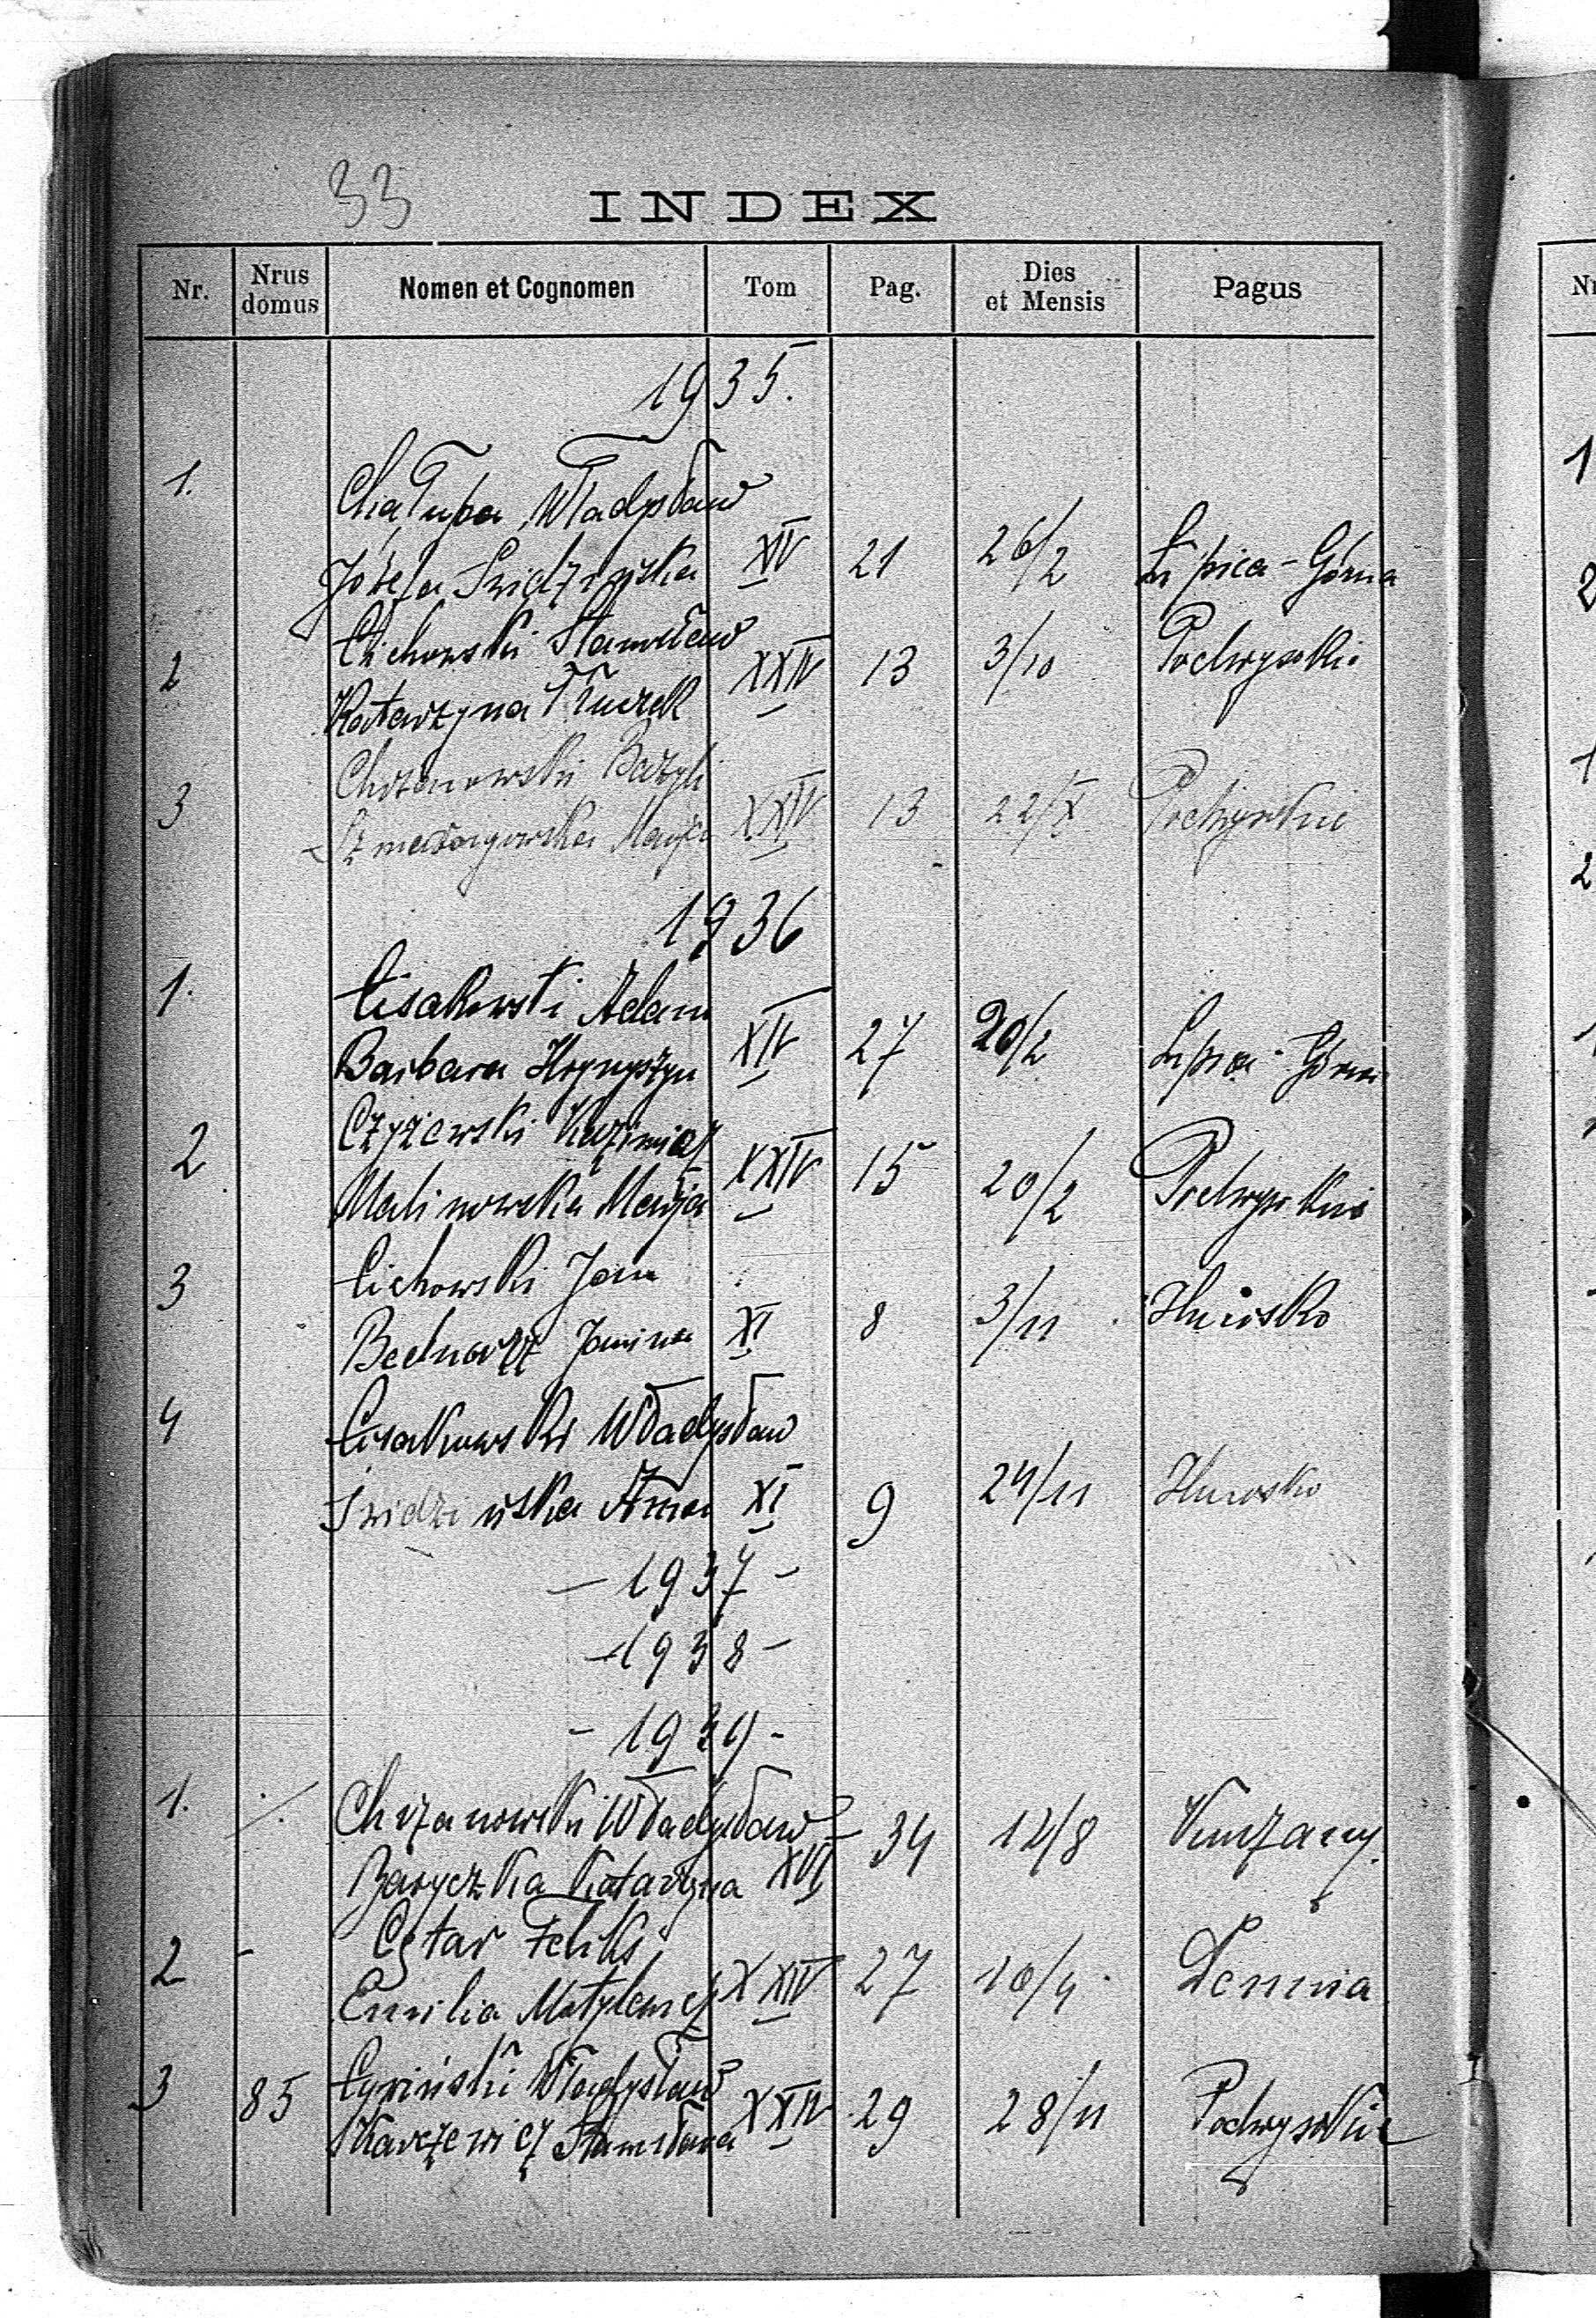 33
INDEX
Nr. Nrus domus Nomen et Cognomen Tom Pag. Dies et Mensis Pagus
1935.
1. Chałupa Władysław
Józefa Śnidzińska XIV 21 26/2 Lipica-Górna
2 Cichowski Stanisław XXIV 13 3/10 Podwysokie
Katarzyna
3 Chrzanowski Bazyli XXIV 13 22/X Podwysokie
Marja
1936
1. Cisakowski Adam
Barbara Hrynyszyn XIV 27 20/2 Lipica-Górna
2 Czyżewski Kazimierz XXIV 15 20/2 Podwysokie
Malinowska Marja
3 Cichowski Jan 3/11 Hnisko
Bednarz Janina XI 8
4 Cisakowski Władysław
Śnidzińska Anna XI 9 24/11 Hnisko
- 1937 -
- 1938 -
- 1939 -
1. Chrzanowski Władysław XVI 34 12/8
Baryczka Katarzyna
2 - Cytar Feliks XXIV 27 10/4 Demnia
Emilia
3 85 Cywiński Władysław XXIV 29 28/11 Podwysokie
Karczewicz Stanisława
N
1
2
1
2